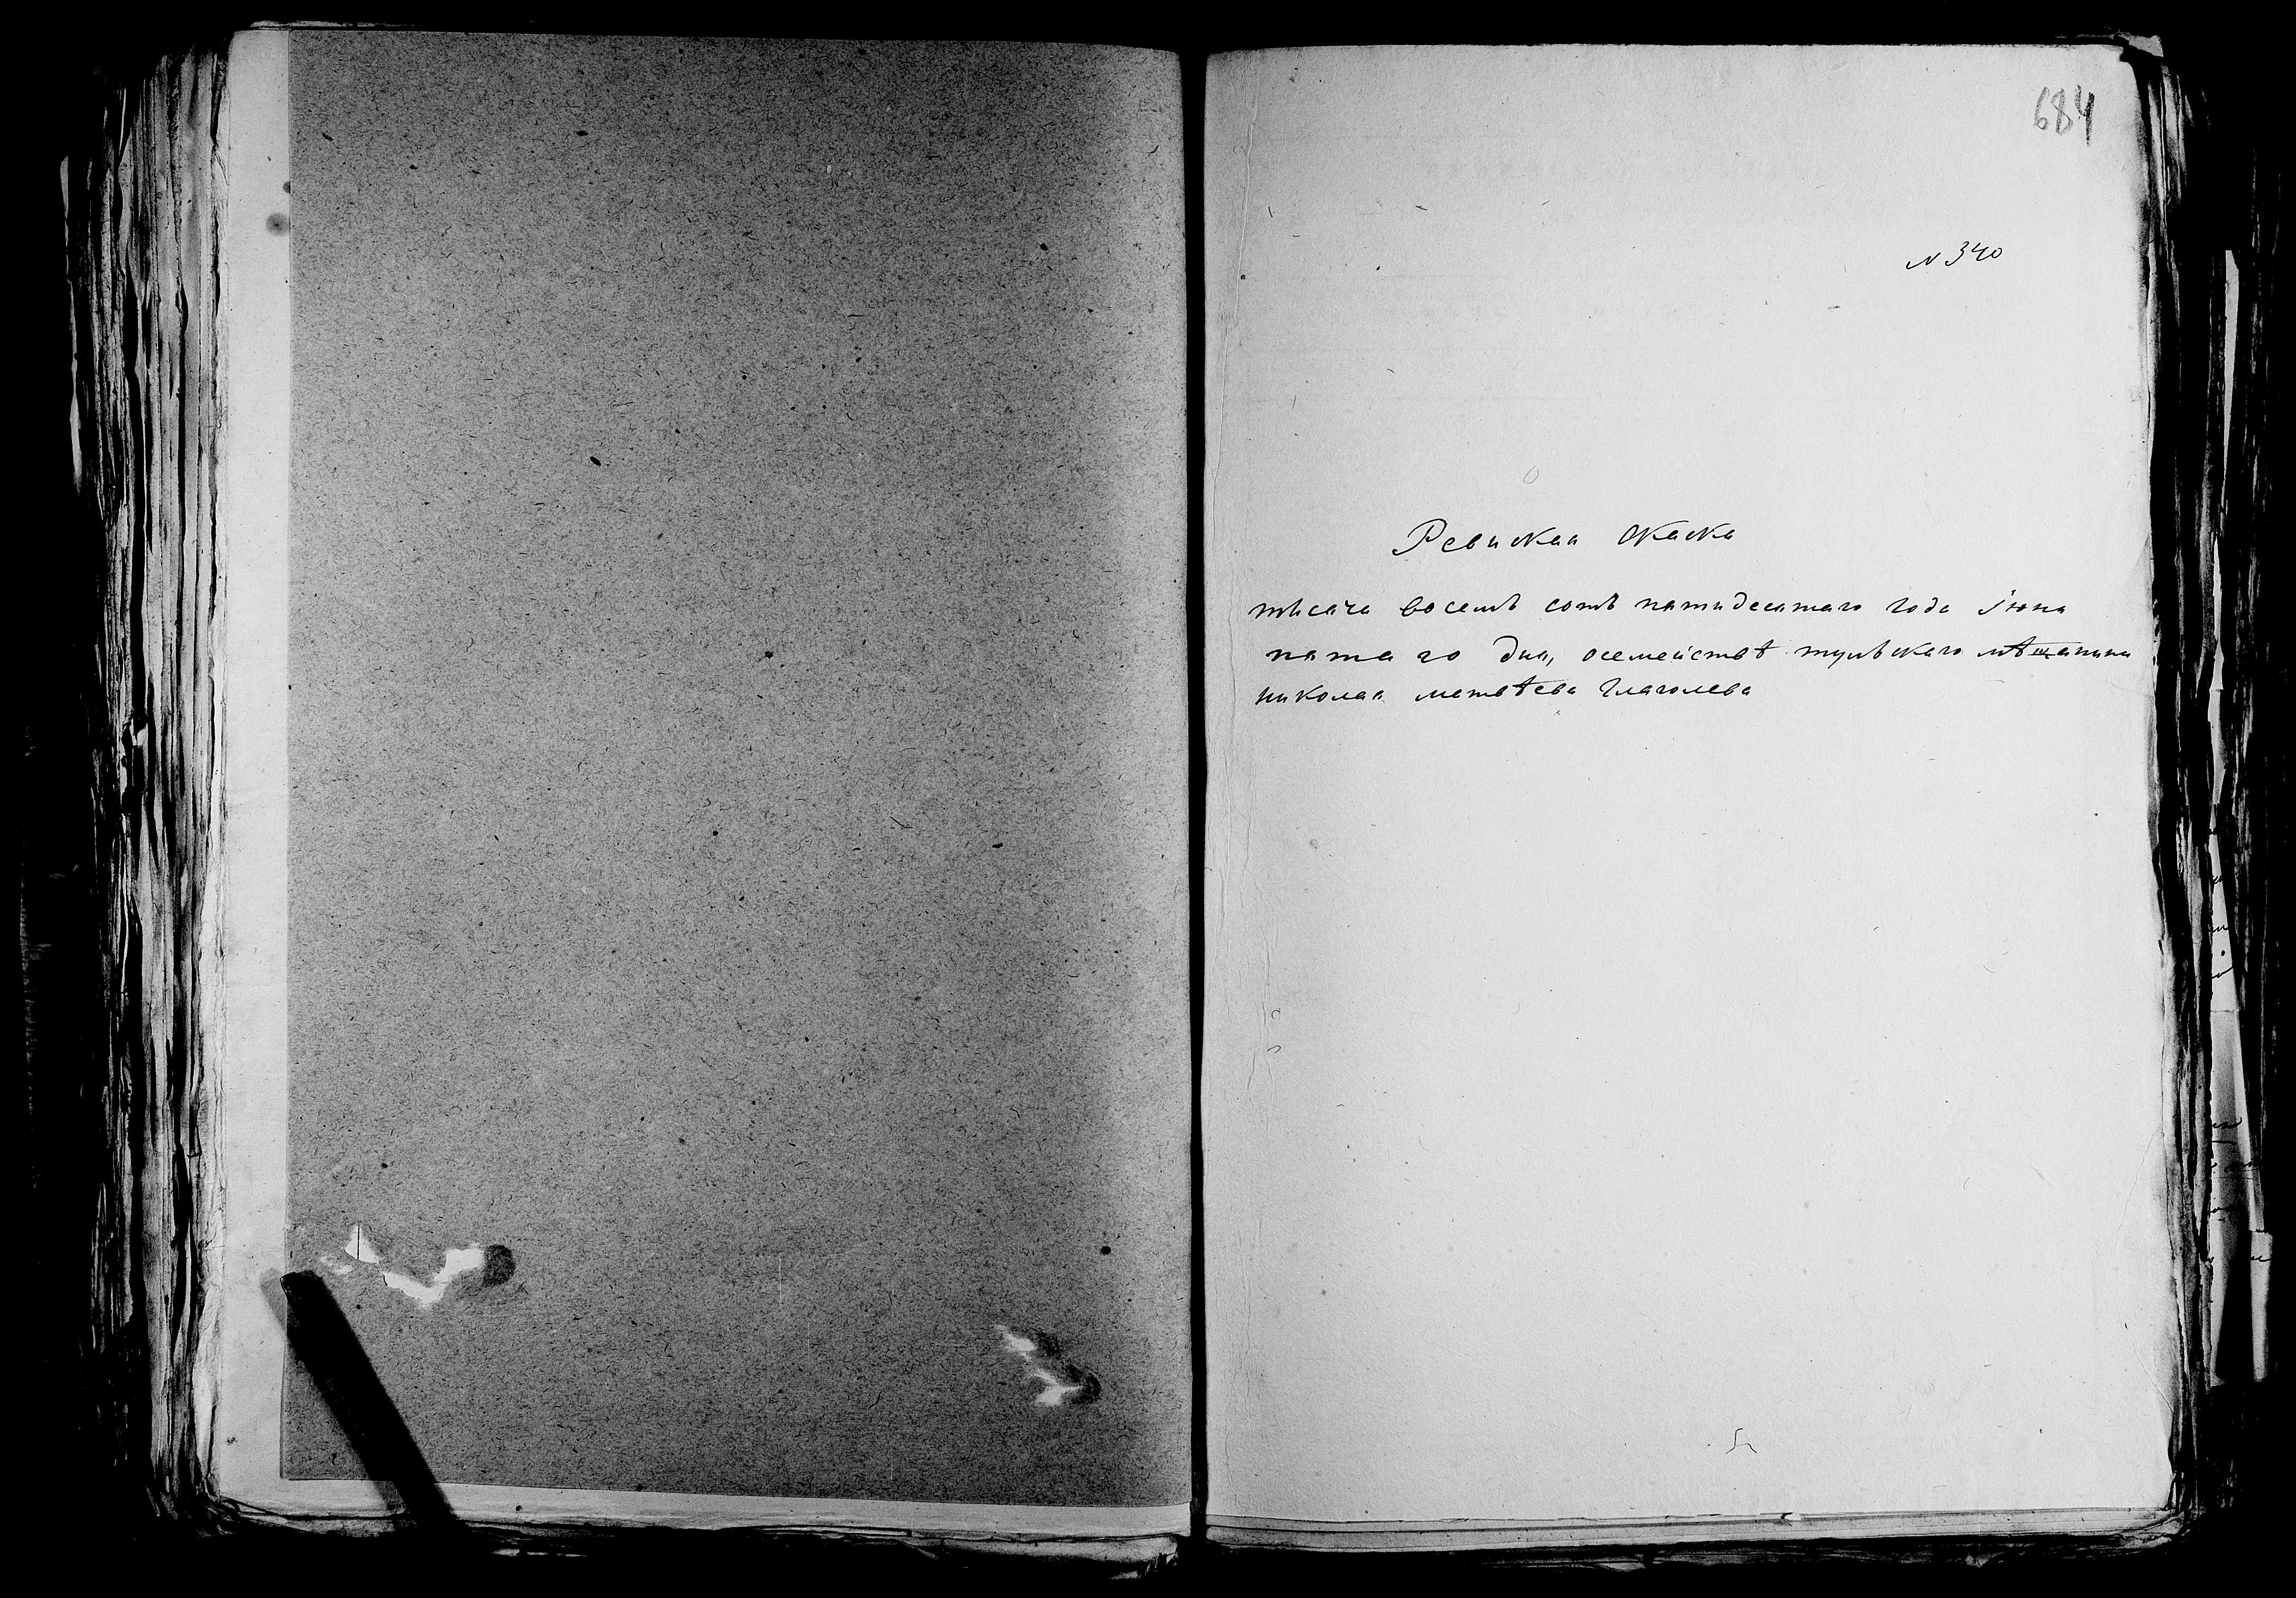 684
N 340
Ревиская скаска
тысяча восемь сотъ пятидесятаго года Iюня
пятаго дня, осемействѣ тульскаго мѣщанина
николая матвѣева Глаголева